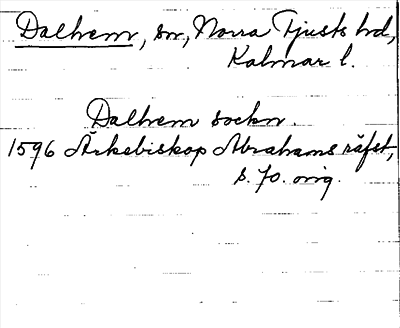 Dalhem, sn, Norra Tjusts hd,
Kalmar l.
Dalhem sockn.
1596 Ärkebiskop Abrahams räfst,
s. 70. orig.